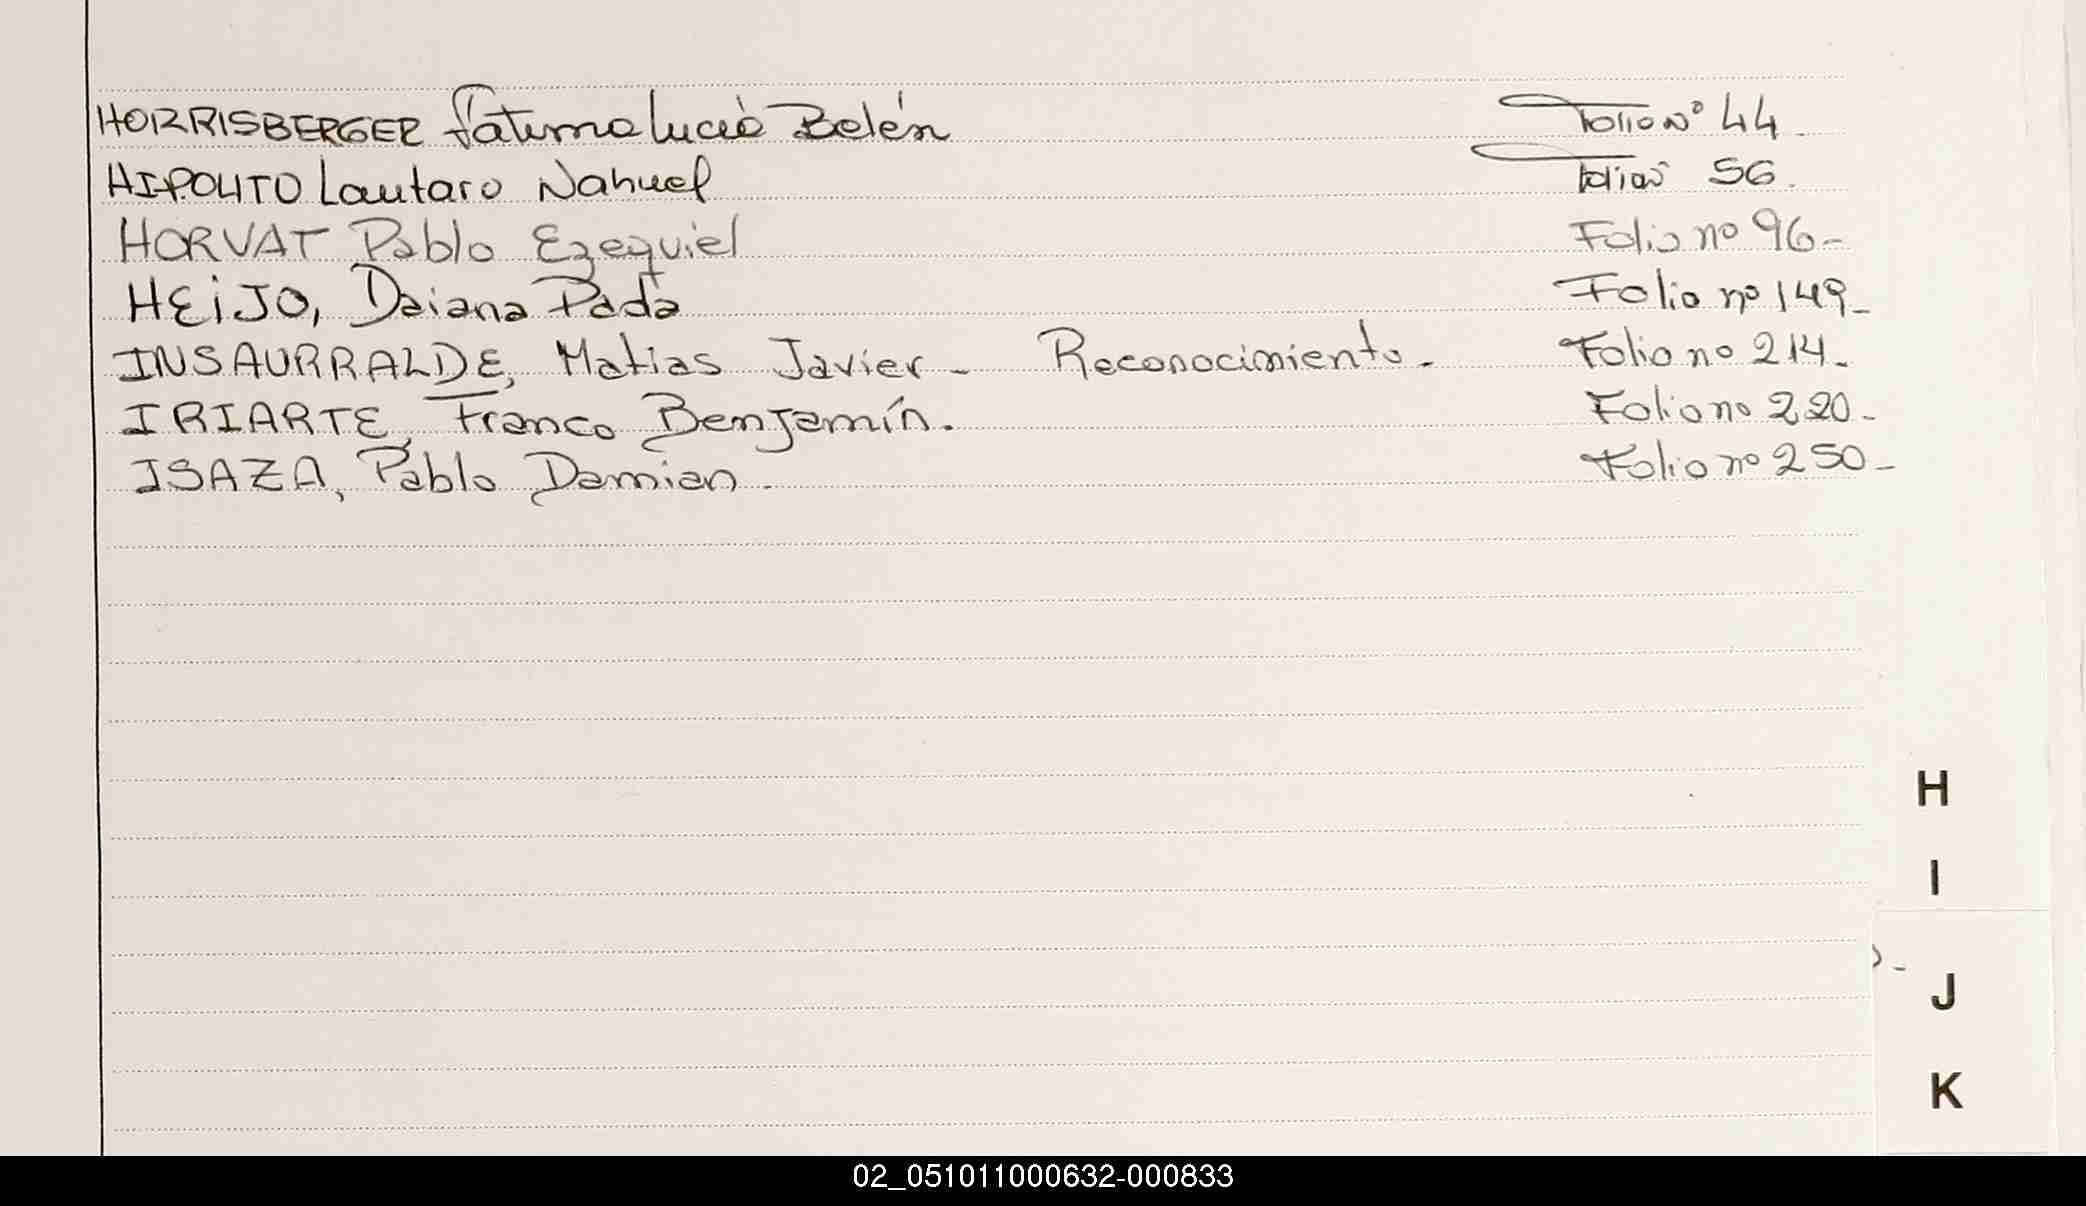 HORRISBERGER Fatima Lucia Belén Folio Nº 44.
HIPOLITO Lautaro Nahuel Folio Nº 56.
HORVAT Pablo Ezequiel Folio nº 96-
HEiJO, Daiana Folio nº 149-
INSAURRALDE, Matias Javier - Reconocimiento. Folio nº 214-
IRIARTE, Franco Benjamín. Folio nº 220-
ISAZA, Pablo Damian. Folio nº 250-
H
I
J
K
02_051011000632-000833